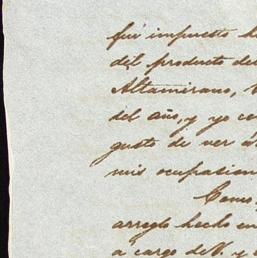 fué impuesto h
del producto de
Altamirano,
del año, y yo co
gusto de ver á
mis ocupasion
Como
arreglo hecho en
á cargo de V. y